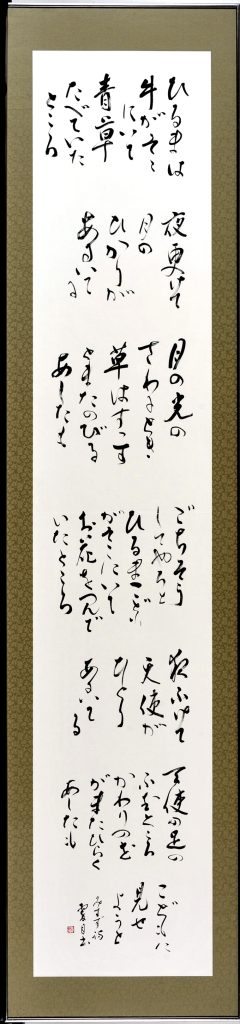 ひるまは
牛がそこ
にいて
青草
たべていた
ところ
夜更けて
月の
ひかりが
あるいてる
月の光の
さわるとき
草はすっす
とまたのびる
あしたも
ごちそう
してやろと
ひるまこども
がそこにいて
お花をつんで
いたところ
夜ふけて
天使が
ひとり
あるいてる
天使の足の
ふむところ
かわりの花
がまたひらく
あしたも
こどもに
見せ
ようと